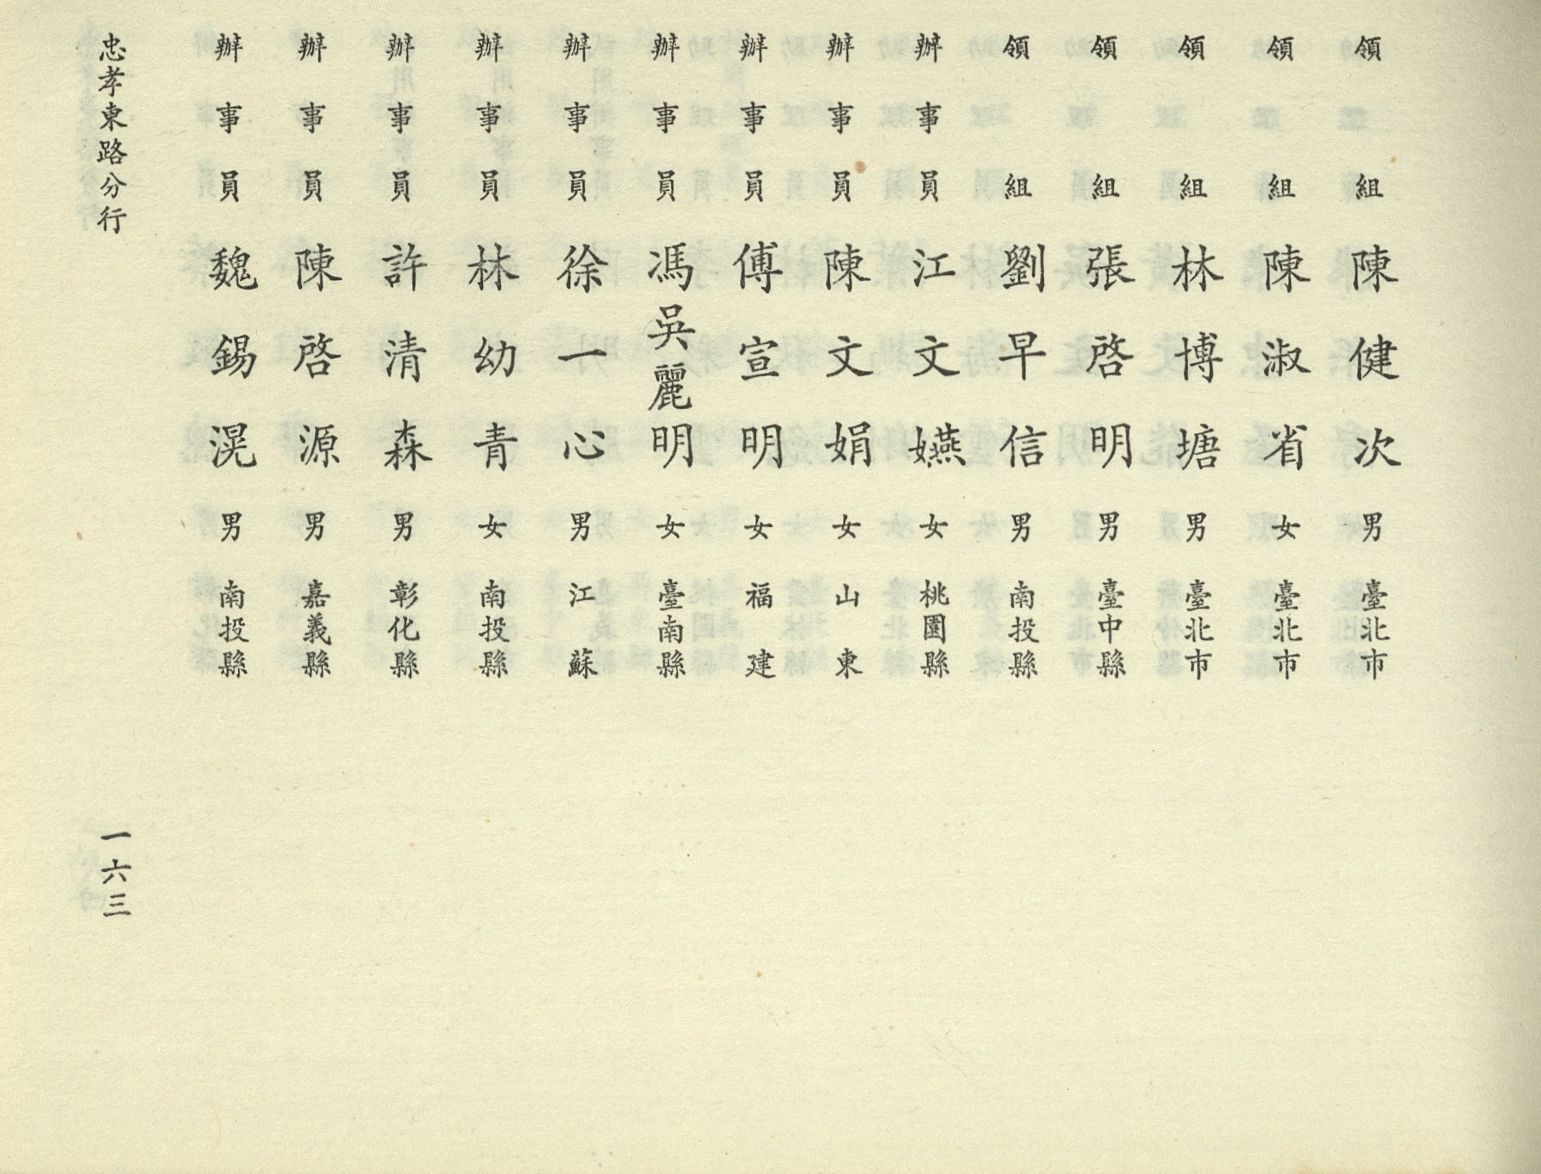 領組陳健次男臺北市
領組陳淑省女臺北市
領組林博塘男臺北市
領組張啓明男臺中縣
領組劉早信男南投縣
辦事員江文嬿女桃園縣
辦事員陳文娟女山東
辦事員傅宣明女福建
辦事員馮吳麗明女臺南縣
辦事員徐一心男江蘇
辦事員林幼青女南投縣
辦事員許清森男彰化縣
辦事員陳啓源男嘉義縣
辦事員魏錫滉男南投縣
忠孝東路分行
一六三